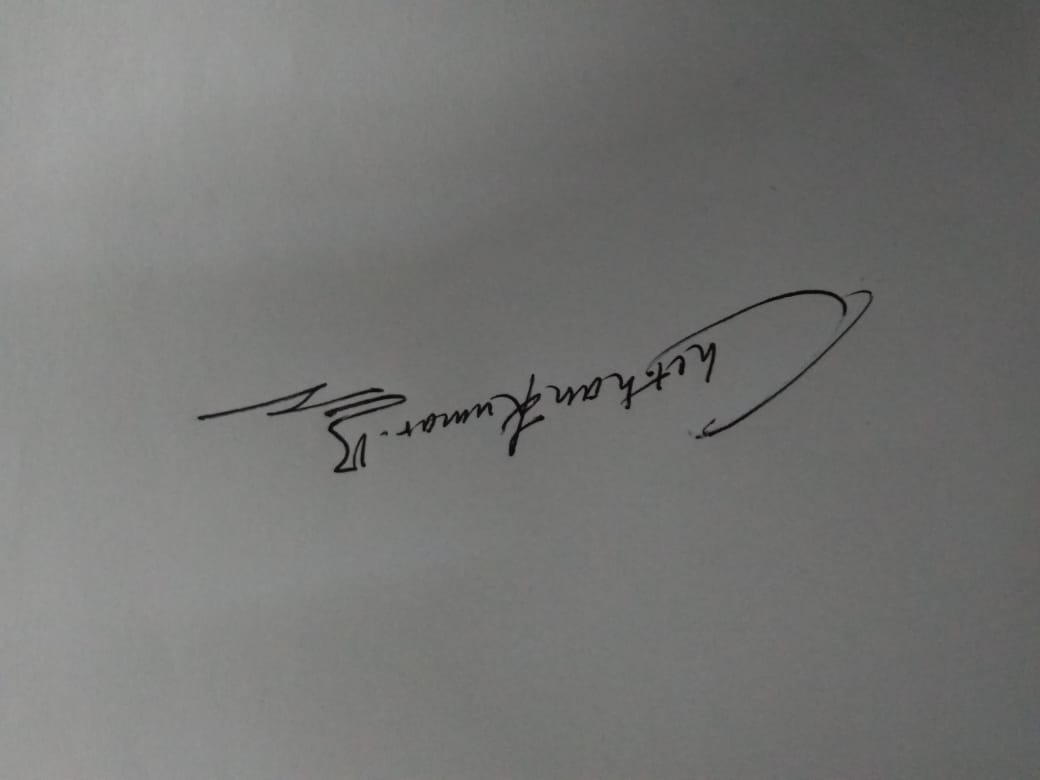 Chethan Kumar. B